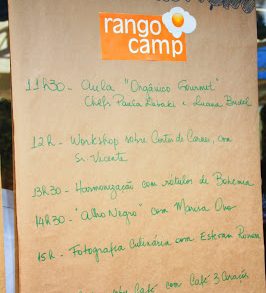 rango
camp
11h30 - Aula "Orgânico Gourmet"
Chefs Paula Labaki e Luana Budel
12h - Workshop sobre Cortes de Carnes, com
Sr. Vicente
13h30 - Harmonização com rótulos de Bohemia
14h30 - "Alho Negro" com Marisa Ono
15h - Fotografia Culinária com Estevan
Café com Café 3 Corações